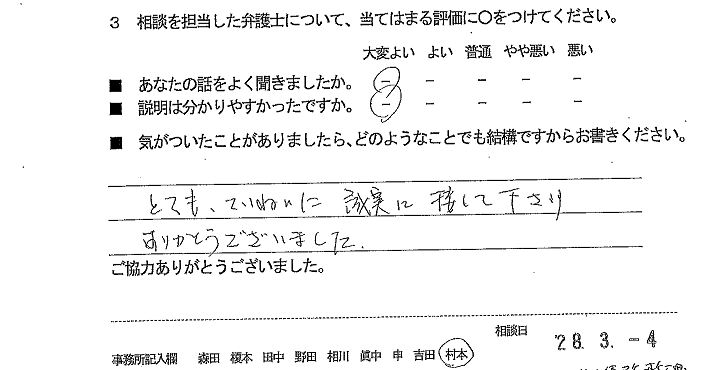 3 相談を担当した弁護士について、当てはまる評価に○をつけてください。
大変よい よい 普通 やや悪い 悪い
■ あなたの話をよく聞きましたか。 - - - - -
■ 説明は分かりやすかったですか。 - - - - -
■ 気がついたことがありましたら、どのようなことでも結構ですからお書きください。
とても、ていねいに 誠実に 接して下さり
ありがとうございました.
ご協力ありがとうございました。
相談日 '28. 3. -4
事務所記入欄 森田 榎本 田中 野田 相川 眞中 申 吉田 村本